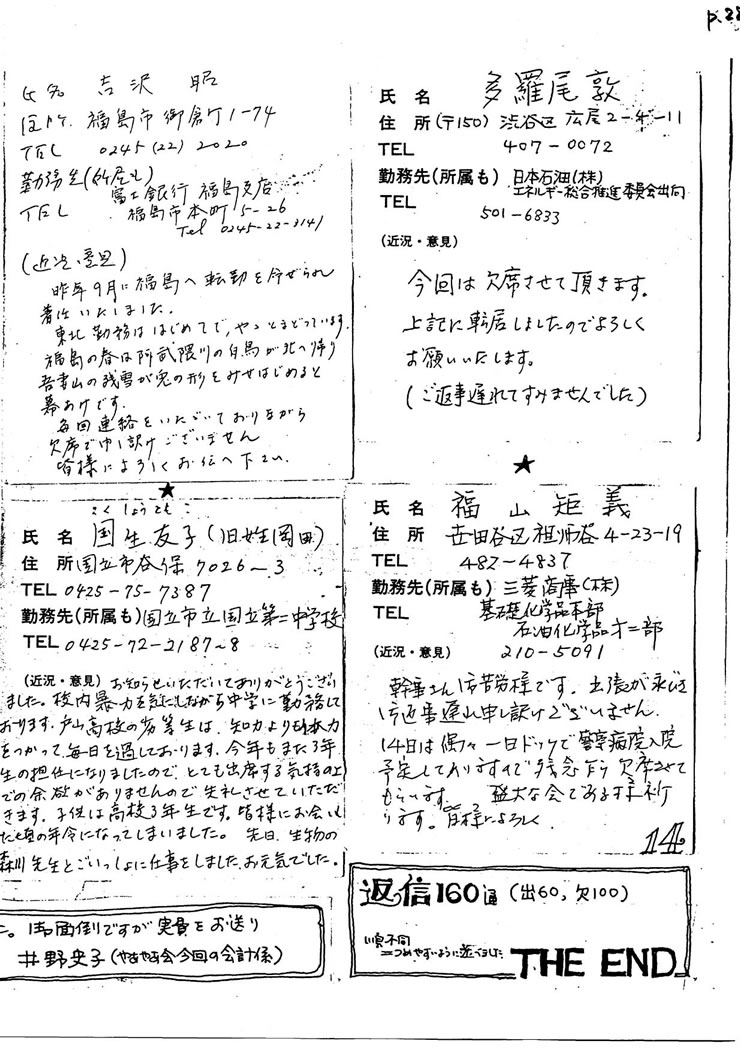 p.28
氏名 吉沢 昭
住所 福島市御倉町1-74
TEL 0245(22)2020
勤務先(所属も)
富士銀行 福島支店
福島市本町5-26
TEL
Tel 0245-22-3141
(近況・意見)
昨年9月に福島へ転勤を命ぜられ
着任いたしました。
東北勤務ははじめてで、やゝとまどっています。
福島の春は阿武隈川の白鳥が北へ帰り
吾妻山の残雪が兎の形をみせはじめると
幕あけです。
毎回連絡をいただいておりながら
欠席で申し訳ございません
皆様によろしくお伝へ下さい。
★
氏名 多羅尾敦
住所(〒150) 渋谷区広尾2-4-11
TEL 407-0072
勤務先(所属も) 日本石油(株)
エネルギー総合推進委員会出向
TEL 501-6833
(近況・意見)
今回は欠席させて頂きます。
上記に転居しましたのでよろしく
お願いいたします。
(ご返事遅れてすみませんでした)
★
こくしょうともこ
氏名 国生友子(旧姓岡田)
住所 国立市谷保7026~3
TEL 0425-75-7387
勤務先(所属も) 国立市立国立第二中学校
TEL 0425-72-2187~8
(近況・意見) お知らせいただいてありがとうござい
ました。校内暴力を気にしながら中学に勤務して
おります。戸山高校の劣等生は、知力よりも体力
をつかって毎日を過しております。今年もまた3年
生の担任になりましたので、とても出席する気持の上
での余欲がありませんので失礼させていただ
きます。子供は高校3年生です。皆様にお会いし
た頃の年令になってしまいました。先日、生物の
森川先生とごいっしょに仕事をしました。お元気でした。
氏名 福山矩義
住所 世田谷区祖師谷4-23-19
TEL 482-4837
勤務先(所属も) 三菱商事(株)
TEL 基礎化学品本部
石油化学品才二部
(近況・意見) 210-5091
幹事さん御苦労様です。出張が永びき
御返事遅れ申し訳けございません。
14日は偶々一日ドックで警察病院入院
予定しておりますので残念ながら欠席させて
もらいます。盛大な会であります様祈
ります。皆様によろしく
14
二。御面倒ですが実費をお送り
井野史子(やまやま会今回の会計係)
返信160通 (出60, 欠100)
順不同
=つめやすいように並べました
THE END